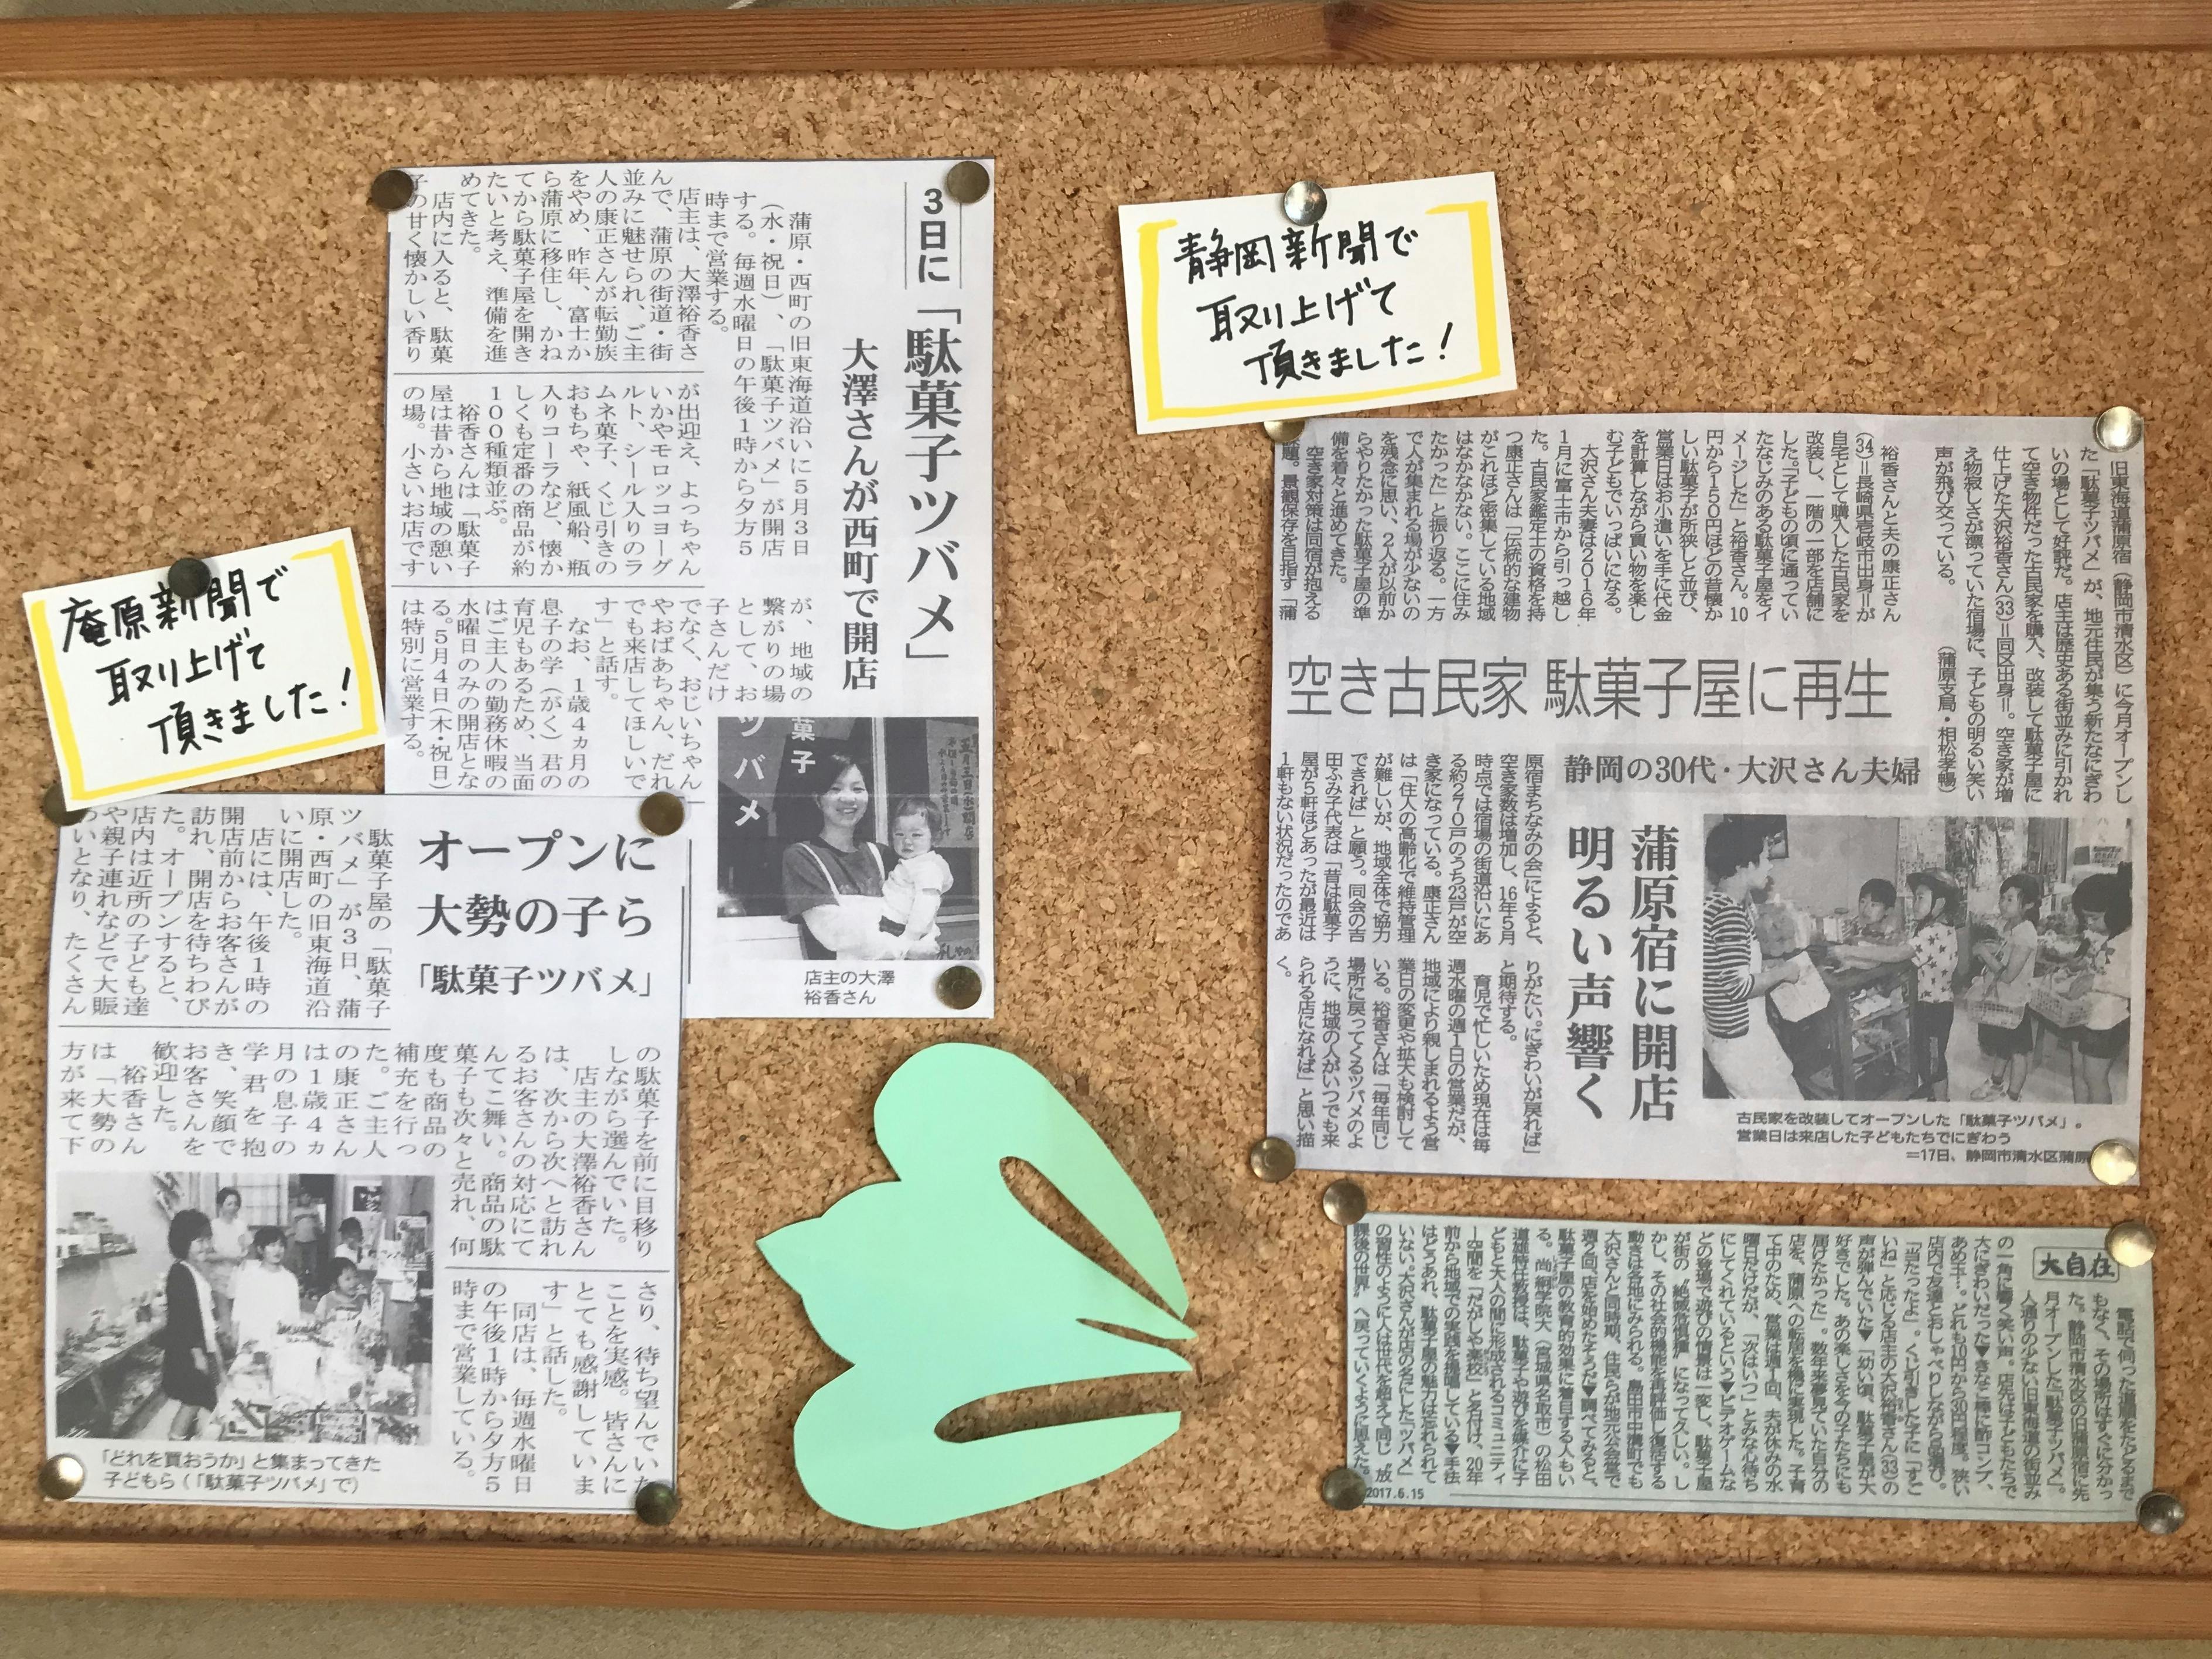 庵原新聞で
取り上げて
頂きました!
3日に「駄菓子ツバメ」
大澤さんが西町で開店
蒲原・西町の旧東海道沿いに5月3日
(水・祝日)、「駄菓子ツバメ」が開店
する。毎週水曜日の午後1時から夕方5
時まで営業する。
店主は、大澤裕香さ
んで、蒲原の街道・街
並みに魅せられ、ご主
人の康正さんが転勤族
をやめ、昨年、富士か
ら蒲原に移住し、かね
てから駄菓子屋を開き
たいと考え、準備を進
めてきた。
店内に入ると、駄菓
子の甘く懐かしい香り
が出迎え、よっちゃん
いかやモロッコヨーグ
ルト、シール入りのラ
ムネ菓子、くじ引きの
おもちゃ、紙風船、瓶
入りコーラなど、懐か
しくも定番の商品が約
100種類並ぶ。
裕香さんは「駄菓子
屋は昔から地域の憩い
の場。小さいお店です
が、地域の
繋がりの場
として、お
子さんだけ
でなく、おじいちゃん
やおばあちゃん、だれ
でも来店してほしいで
す」と話す。
なお、1歳4ヵ月の
息子の学(がく)君の
育児もあるため、当面
はご主人の勤務休暇の
水曜日のみの開店とな
る。5月4日(木・祝日)
は特別に営業する。
菓子
ツバメ
店主の大澤
裕香さん
オープンに
大勢の子ら
「駄菓子ツバメ」
駄菓子屋の「駄菓子
ツバメ」が3日、蒲
原・西町の旧東海道沿
いに開店した。
店には、午後1時の
開店前からお客さんが
訪れ、開店を待ちわび
た。オープンすると、
店内は近所の子ども達
や親子連れなどで大賑
わいとなり、たくさん
の駄菓子を前に目移り
しながら選んでいた。
店主の大澤裕香さん
は、次から次へと訪れ
るお客さんの対応にて
んてこ舞い。商品の駄
菓子も次々と売れ、何
度も商品の
補充を行っ
た。ご主人
の康正さん
は1歳4ヵ
月の息子の
学君を抱
き、笑顔で
お客さんを
歓迎した。
裕香さん
は「大勢の
方が来て下
さり、待ち望んでいた
ことを実感。皆さんに
とても感謝していま
す」と話した。
同店は、毎週水曜日
の午後1時から夕方5
時まで営業している。
「どれを買おうか」と集まってきた
子どもら(「駄菓子ツバメ」で)
静岡新聞で
取り上げて
頂きました!
旧東海道蒲原宿(静岡市清水区)に今月オープンし
た「駄菓子ツバメ」が、地元住民が集う新たなにぎわ
いの場として好評だ。店主は歴史ある街並みに引かれ
て空き物件だった古民家を購入、改装して駄菓子屋に
仕上げた大沢裕香さん(33)=同区出身=。空き家が増
え物寂しさが漂っていた宿場に、子どもの明るい笑い
声が飛び交っている。 (蒲原支局・相松孝暢)
裕香さんと夫の康正さん
(34)=長崎県壱岐市出身=が
自宅として購入した古民家を
改装し、一階の一部を店舗に
した。「子どもの頃に通ってい
たなじみのある駄菓子屋をイ
メージした」と裕香さん。10
円から150円ほどの昔懐か
しい駄菓子が所狭しと並び、
営業日はお小遣いを手に代金
を計算しながら買い物を楽し
む子どもでいっぱいになる。
大沢さん夫妻は2016年
1月に富士市から引っ越し
た。古民家鑑定士の資格を持
つ康正さんは「伝統的な建物
がこれほど密集している地域
はなかなかない。ここに住み
たかった」と振り返る。一方
で人が集まれる場が少ないの
を残念に思い、2人が以前か
らやりたかった駄菓子屋の準
備を着々と進めてきた。
空き家対策は同宿が抱える
課題。景観保存を目指す「蒲
空き古民家 駄菓子屋に再生
静岡の30代・大沢さん夫婦
蒲原宿に開店
明るい声響く
原宿まちなみの会」によると、
空き家数は増加し、16年5月
時点では宿場の街道沿いにあ
る約270戸のうち23戸が空
き家になっている。康正さん
は「住人の高齢化で維持管理
が難しいが、地域全体で協力
できれば」と願う。同会の吉
田ふみ子代表は「昔は駄菓子
屋が5軒ほどあったが最近は
1軒もない状況だったのであ
りがたい。にぎわいが戻れば」
と期待する。
育児で忙しいため現在は毎
週水曜の週1日の営業だが、
地域により親しまれるよう営
業日の変更や拡大も検討して
いる。裕香さんは「毎年同じ
場所に戻ってくるツバメのよ
うに、地域の人がいつでも来
られる店になれば」と思い描
く。
古民家を改装してオープンした「駄菓子ツバメ」。
営業日は来店した子どもたちでにぎわう
=17日、静岡市清水区蒲原
大自在
電話で伺った道順をたどるまで
もなく、その場所はすぐに分かっ
た。静岡市清水区の旧蒲原宿に先
月オープンした「駄菓子ツバメ」。
人通りの少ない旧東海道の街並み
の一角に響く笑い声。店先は子どもたちで
大にぎわいだった▼きなこ棒に酢コンブ、
あめ玉…。どれも10円から30円程度。狭い
店内で友達とおしゃべりしながら品選び。
「当たったよ」。くじ引きした子に「すご
いね」と応じる店主の大沢裕香さん(33)の
声が弾んでいた▼「幼い頃、駄菓子屋が大
好きでした。あの楽しさを今の子たちにも
届けたかった」。数年来夢見ていた自分の
店を、蒲原への転居を機に実現した。子育
て中のため、営業は週1回、夫が休みの水
曜日だけだが、「次はいつ」とみな心待ち
にしてくれているという▼ビデオゲームな
どの登場で遊びの情景は一変し、駄菓子屋
が街の“絶滅危惧種”になって久しい。し
かし、その社会的機能を再評価し復活する
動きは各地にみられる。島田市中溝町でも
大沢さんと同時期、住民らが地元公会堂で
週2回、店を始めたそうだ▼調べてみると、
駄菓子屋の教育的効果に着目する人もい
る。尚絅学院大(宮城県名取市)の松田
道雄特任教授は、駄菓子や遊びを媒介に子
どもと大人の間に形成されるコミュニティ
ー空間を「だがしや楽校」と名付け、20年
前から地域での実践を提唱している▼手法
はどうあれ、駄菓子屋の魅力は忘れられて
いない。大沢さんが店の名にした「ツバメ」
の習性のように人は世代を超えて同じ“放
課後の世界”へ戻っていくように思えた。
2017.6.15